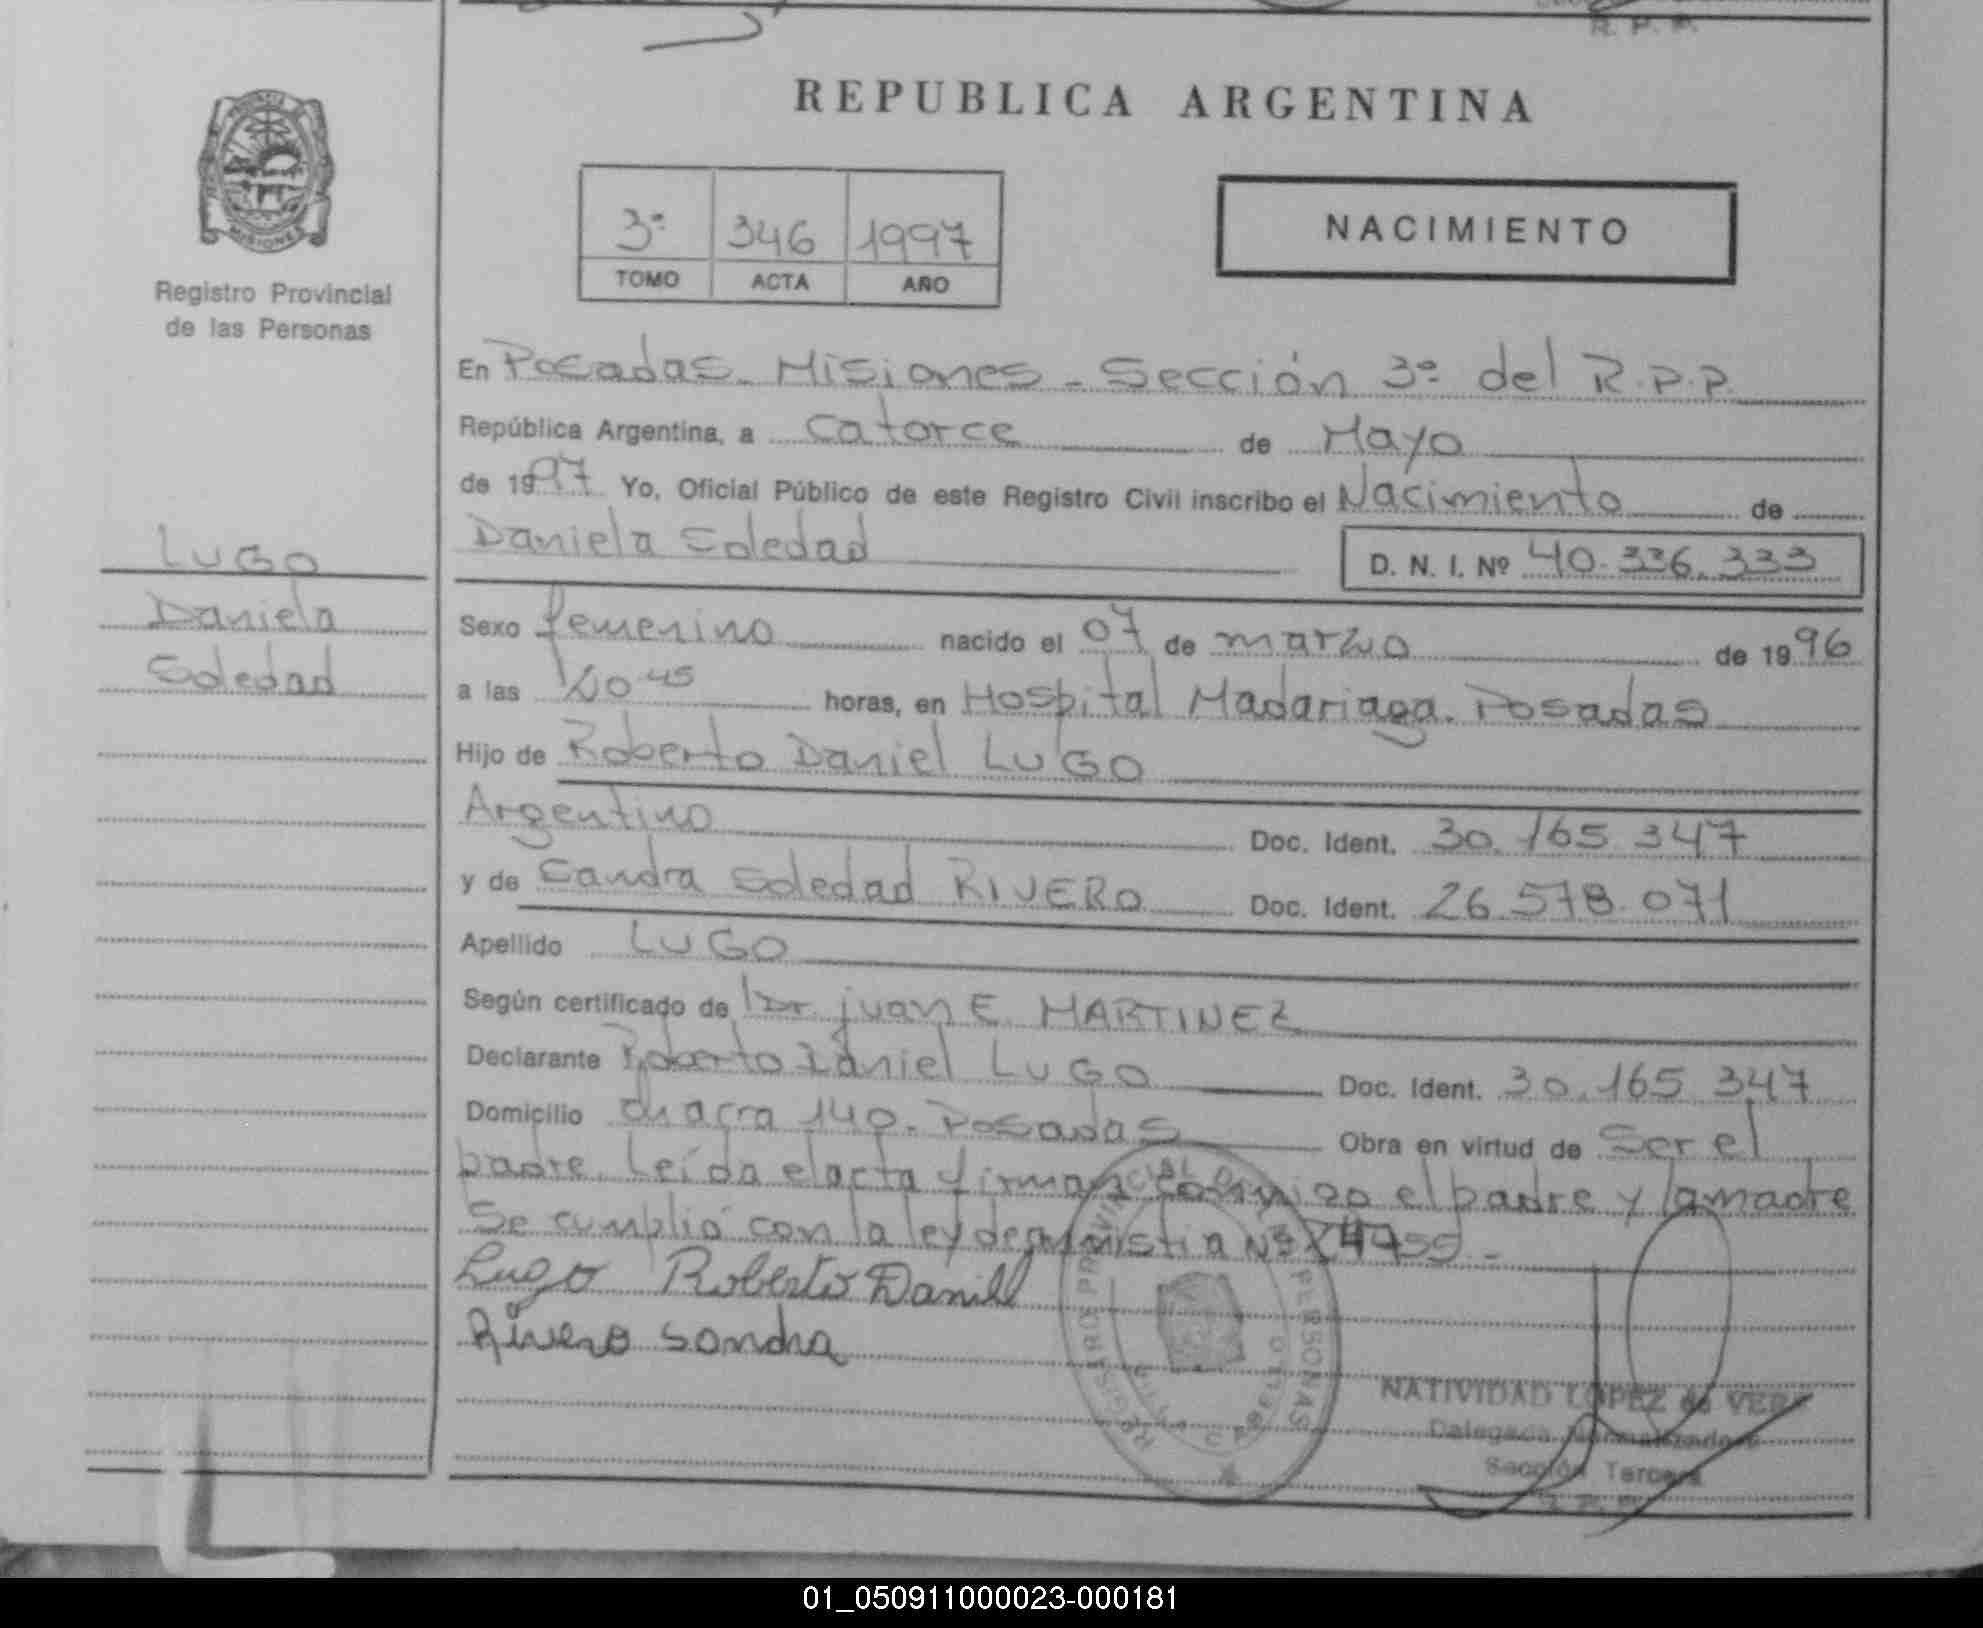 R. P. P.
REPUBLICA ARGENTINA
MISIONES
Registro Provincial
de las Personas
3º 346 1997
TOMO ACTA AÑO
NACIMIENTO
En Posadas - Misiones - Sección 3º del R.P.P.
República Argentina, a Catorce de Mayo
de 1997 Yo, Oficial Público de este Registro Civil inscribo el Nacimiento de
Daniela Soledad D. N. I. Nº 40.336.333
LUGO
Daniela
Soledad
Sexo femenino nacido el 07 de marzo de 1996
a las 45 horas, en Hospital Madariaga. Posadas
Hijo de Roberto Daniel LUGO
Argentino Doc. Ident. 30.165.347
y de Sandra Soledad RIVERO Doc. Ident. 26.578.071
Apellido LUGO
Según certificado de Dr. juan E. MARTINEZ
Declarante Roberto Daniel LUGO Doc. Ident. 30.165.347
Domicilio chacra 140. Posadas Obra en virtud de Ser el
padre. Leída el acta firman conmigo el padre y la madre
Se cumplió con la ley de amnistia Nº
Lugo Roberto Daniel
Rivero Sandra
REGISTRO PROVINCIAL DE LAS PERSONAS
NATIVIDAD LOPEZ de VERA
Delegada Normalizadora
Sección Tercera
R. P. P.
01_050911000023-000181